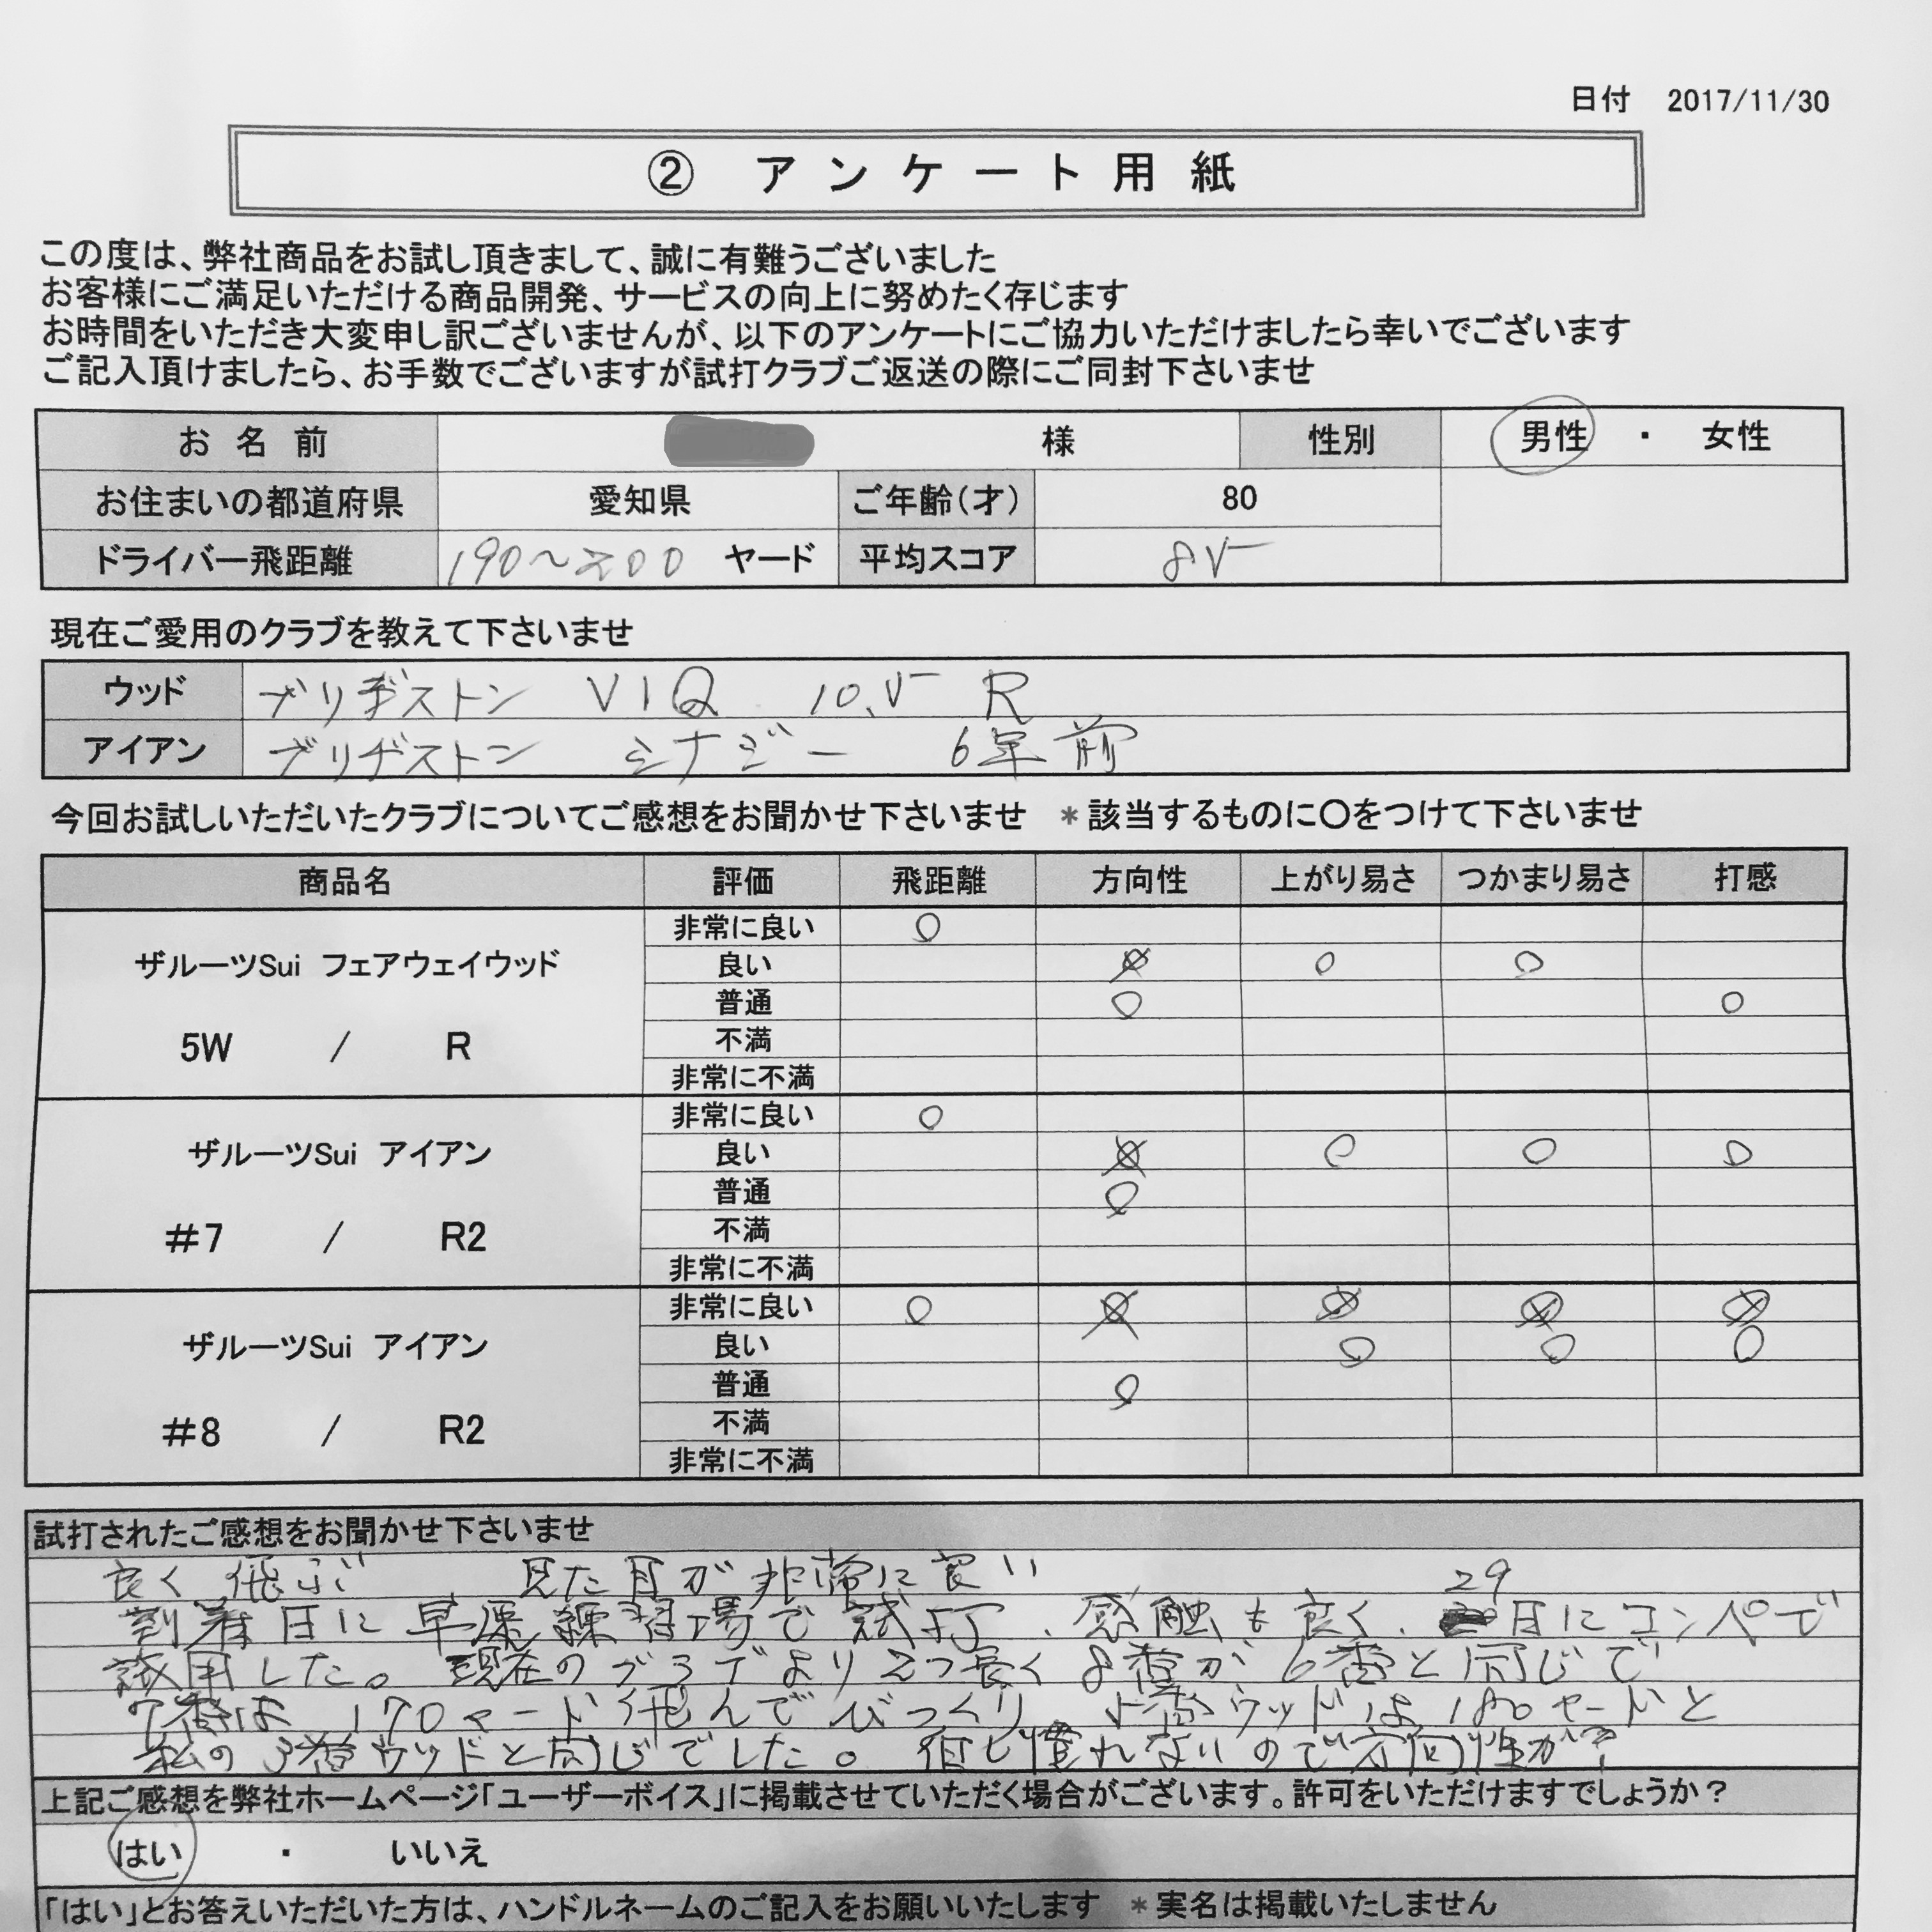 日付 2017/11/30
② アンケート用紙
この度は、弊社商品をお試し頂きまして、誠に有難うございました
お客様にご満足いただける商品開発、サービスの向上に努めたく存じます
お時間をいただき大変申し訳ございませんが、以下のアンケートにご協力いただけましたら幸いでございます
ご記入頂けましたら、お手数でございますが試打クラブご返送の際にご同封下さいませ
お名前 様 性別 男性 ・ 女性
お住まいの都道府県 愛知県 ご年齢(才) 80
ドライバー飛距離 190〜200 ヤード 平均スコア 85
現在ご愛用のクラブを教えて下さいませ
ウッド ブリヂストン VIQ 10.5 R
アイアン ブリヂストン シナジー 6年前
今回お試しいただいたクラブについてご感想をお聞かせ下さいませ *該当するものに〇をつけて下さいませ
商品名 評価 飛距離 方向性 上がり易さ つかまり易さ 打感
ザルーツSui フェアウェイウッド
5W / R
非常に良い
良い
普通
不満
非常に不満
ザルーツSui アイアン
#7 / R2
非常に良い
良い
普通
不満
非常に不満
ザルーツSui アイアン
#8 / R2
非常に良い
良い
普通
不満
非常に不満
試打されたご感想をお聞かせ下さいませ
良く飛ぶ 見た目が非常に良い
到着日に早速練習場で試打、感触も良く、29日にコンペで
試用した。現在のクラブより2つ長く8番が6番と同じで
7番は170ヤード飛んでびっくり 5番ウッドは180ヤードと
私の3番ウッドと同じでした。但し慣れないので方向性が?
上記ご感想を弊社ホームページ「ユーザーボイス」に掲載させていただく場合がございます。許可をいただけますでしょうか?
はい ・ いいえ
「はい」とお答えいただいた方は、ハンドルネームのご記入をお願いいたします *実名は掲載いたしません